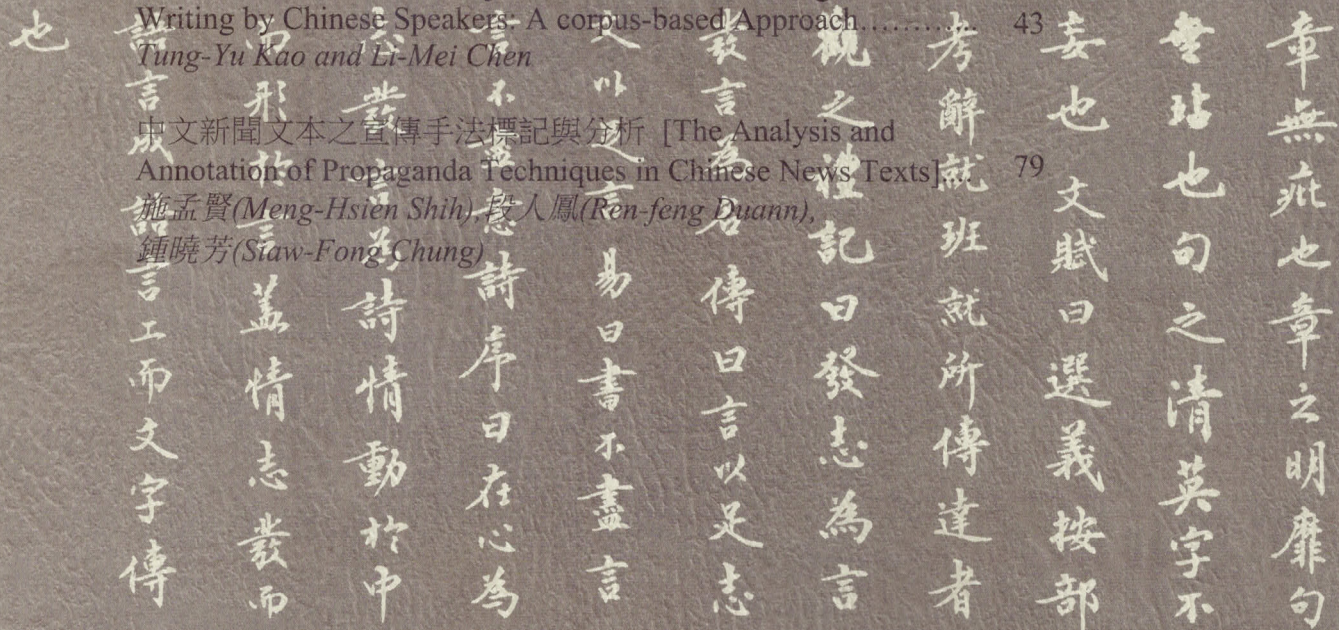 Writing by Chinese Speakers: A corpus-based Approach............ 43
Tung-Yu Kao and Li-Mei Chen
中文新聞文本之宣傳手法標記與分析 [The Analysis and
Annotation of Propaganda Techniques in Chinese News Texts].... 79
施孟賢(Meng-Hsien Shih),段人鳳(Ren-feng Duann),
鍾曉芳(Siaw-Fong Chung)
章無疵也章之明靡句
無玷也句之清英字不
妄也 文賦曰選義按部
考辭就班就所傳達者
觀之禮記曰發志為言
發言為名傳曰言以足志
文以足言易曰書不盡言
言不盡意詩序曰在心為
志發言為詩情動於中
而形於言蓋情志發而
語言成語言工而文字傳
也